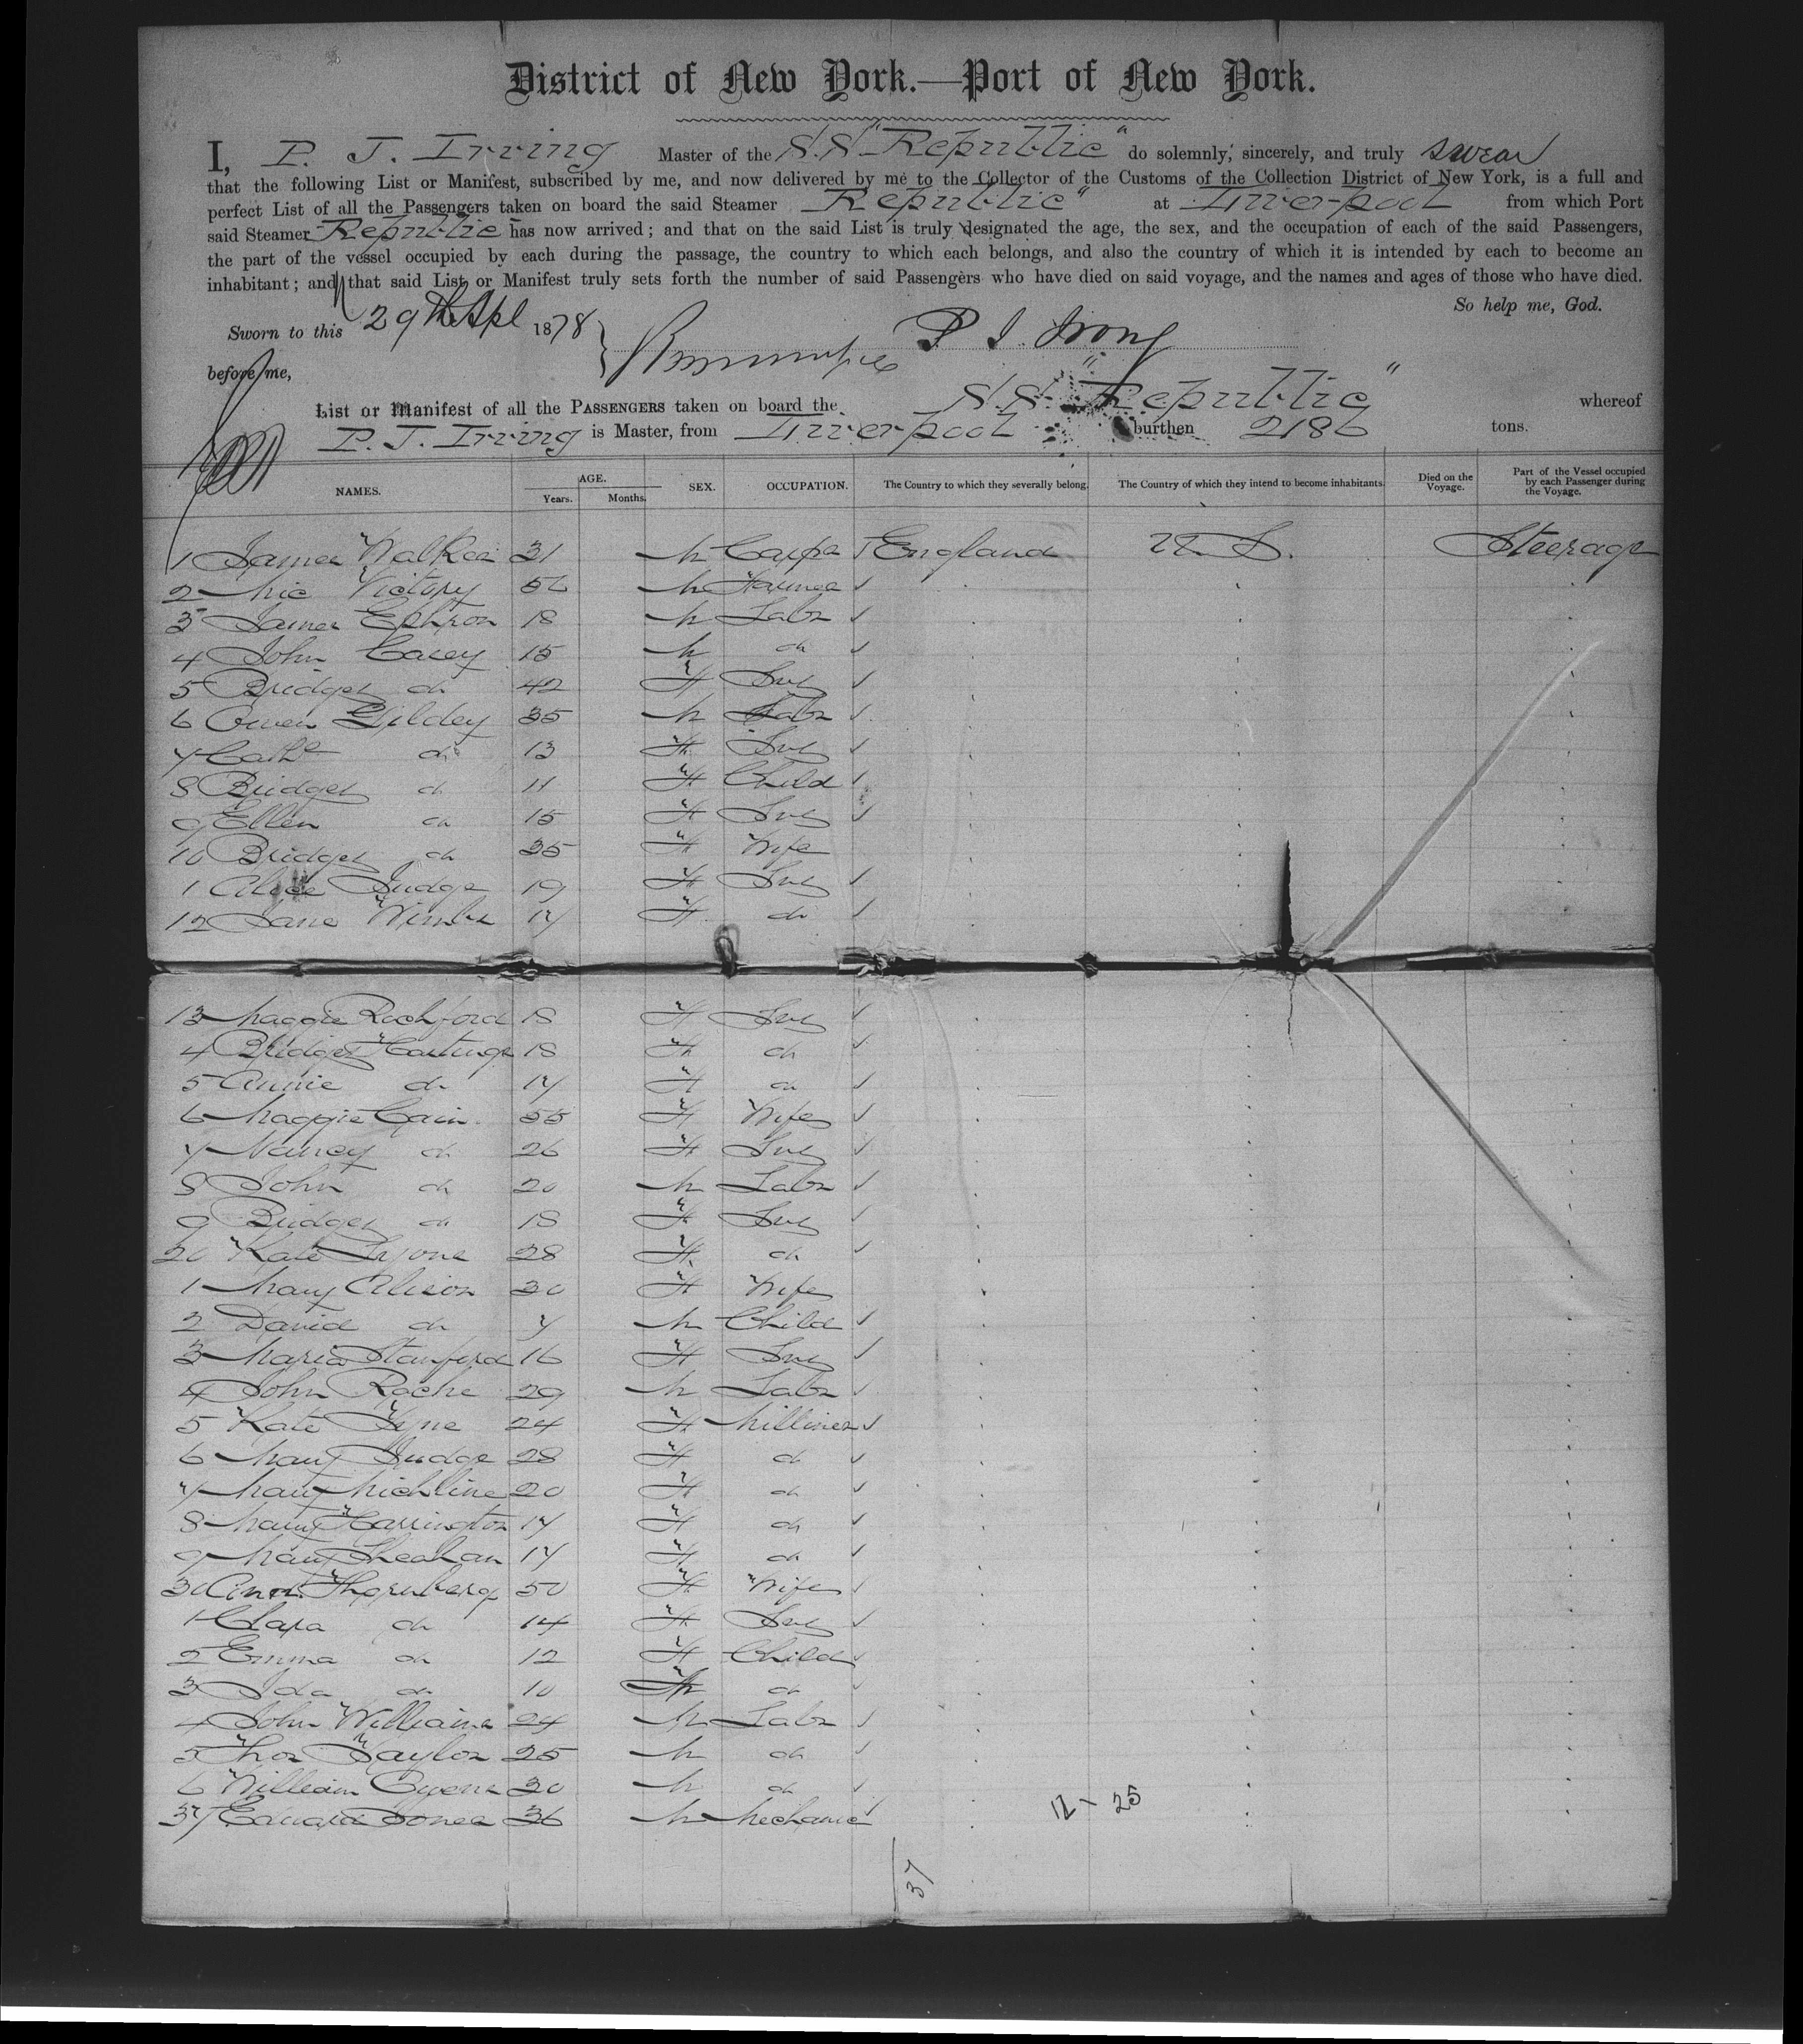 District of New York.—Port of New York.
I, P. J. Irving Master of the S.S. "Republic" do solemnly, sincerely, and truly swear
that the following List or Manifest, subscribed by me, and now delivered by me to the Collector of the Customs of the Collection District of New York, is a full and
perfect List of all the Passengers taken on board the said Steamer Republic" at Liverpool from which Port
said Steamer Republic has now arrived; and that on the said List is truly designated the age, the sex, and the occupation of each of the said Passengers,
the part of the vessel occupied by each during the passage, the country to which each belongs, and also the country of which it is intended by each to become an
inhabitant; and that said List or Manifest truly sets forth the number of said Passengers who have died on said voyage, and the names and ages of those who have died.
So help me, God.
Sworn to this 29th Apl 1878 P J. Irving
before me,
List or Manifest of all the PASSENGERS taken on board the S.S. "Republic" whereof
P. J. Irving is Master, from Liverpool burthen 2186 tons.
NAMES. AGE. Years. Months. SEX. OCCUPATION. The Country to which they severally belong. The Country of which they intend to become inhabitants. Died on the Voyage. Part of the Vessel occupied by each Passenger during the Voyage.
1 James Walker 31 M Carpr England U.S. Steerage
2 Mic Victory 56 M Farmer
3 James Ephron 18 M Labr
4 John Casey 15 M do
5 Bridget do 42 F Svt
6 Owen Gildey 35 M Labr
7 Cathe do 13 F Svt
8 Bridget do 11 F Child
9 Ellen do 15 F Svt
10 Bridget do 35 F Wife
1 Alice Judge 19 F Svt
12 Jane 17 F do
13 Maggie Rochford 18 F Svt
4 Bridget Hastings 18 F do
5 Annie do 17 F do
6 Maggie Cain 55 F Wife
7 Nancy do 26 F Svt
8 John do 20 M Labr
9 Bridget do 18 F Svt
20 Kate Lyons 28 F do
1 Mary Alison 30 F Wife
2 David do 7 M Child
3 Maria Stanford 16 F Svt
4 John Roche 29 M Labr
5 Kate Tyne 24 F Milliner
6 Mary Judge 28 F do
7 Mary Michline 20 F do
8 Mary Harrington 17 F do
9 Mary Sheahan 17 F do
30 Ann Thornberg 50 F Wife
1 Clara do 14 F Svt
2 Emma do 12 F Child
3 Ida do 10 F do
4 John Williams 24 M Labr
5 Thos Taylor 25 M do
6 William Owens 30 M do
37 Edward Jones 36 M Mechanic
12 - 25
37